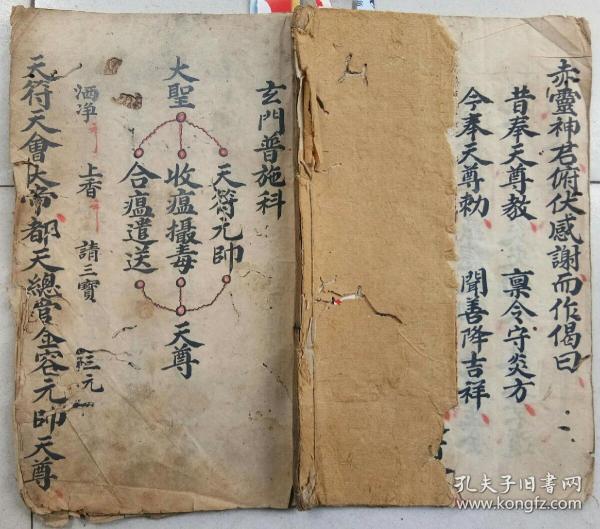 赤靈神君俯伏感謝而作偈曰
昔奉天尊教 稟令守炎方
今奉天尊勅 聞善降吉祥
玄門普施科
大聖
天符元帥
收瘟攝毒
合瘟遣送
天尊
洒净 上香 請三寳 三元
天符天會大帝都天總管金容元帥天尊
孔夫子旧书网
kongfz.com